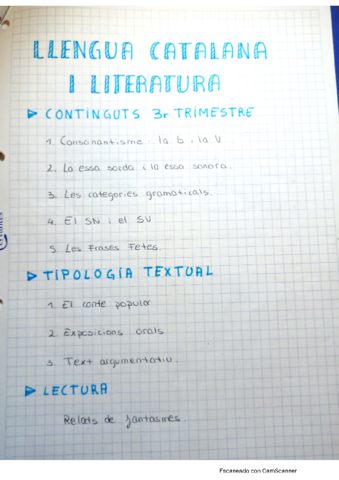 LLENGUA CATALANA
I LITERATURA
CONTINGUTS 3r TRIMESTRE
1. Consonantisme: la b i la V
2. La essa sorda i la essa sonora.
3. Les categories gramaticals.
4. El SN i el SV
5. Les Frases Fetes.
TIPOLOGÍA TEXTUAL
1. El conte popular
2. Exposicions orals
3. Text argumentatiu.
LECTURA
Relats de fantasmes.
Escaneado con CamScanner